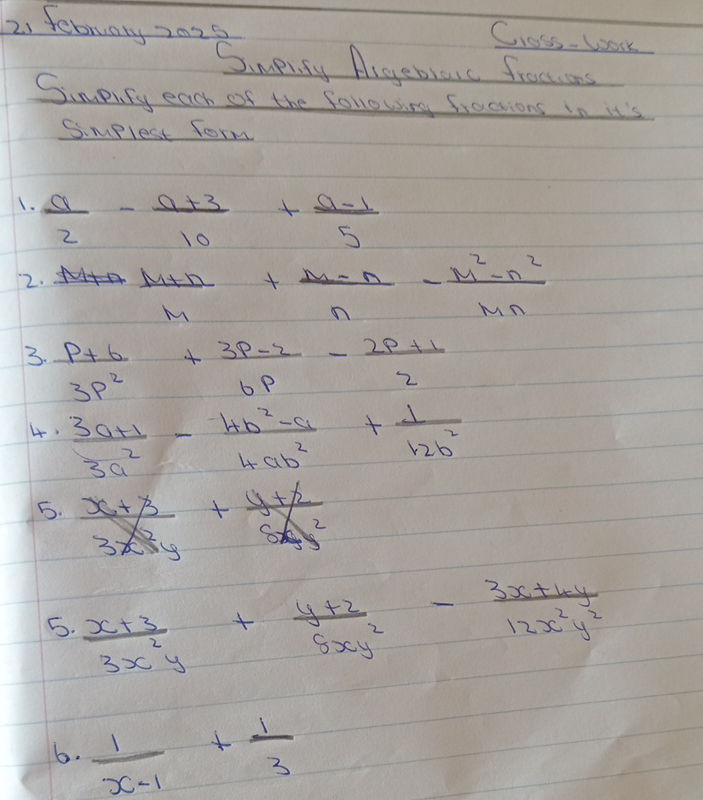 21 February 2025 Class-Work
Simplify Algebraic fractions
Simplify each of the following fractions in it's
simplest form
1. a/2 - a+3/10 + a-1/5
2. M+n M+n/M + M-n/n - M²-n²/Mn
3. P+6/3P² + 3P-2/6P - 2P+1/2
4. 3a+1/3a² - 4b²-a/4ab² + 1/12b²
5. x+3/3x²y + y+2/8xy²
5. x+3/3x²y + y+2/8xy² - 3x+4y/12x²y²
6. 1/x-1 + 1/3